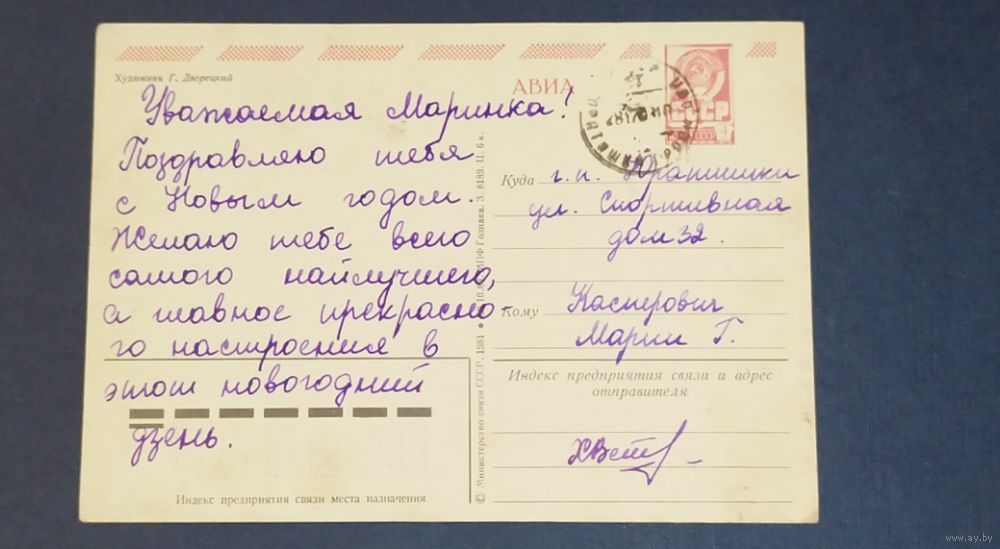 Художник Г. Дворецкий
Уважаемая Маринка!
Поздравляю тебя
с Новым годом.
Желаю тебе всего
самого найлучшего,
а главное прекрасно-
го настроения в
этот новогодний
дзень.
Индекс предприятия связи места назначения
© Министерство связи СССР. 1981
Гознака. З. 8189. Ц. 6 к.
АВИА
СССР
Куда г.п. Юратишки
ул. Спортивная
дом 32.
Кому Касперович
Марии Г.
Индекс предприятия связи и адрес
отправителя
www.ay.by